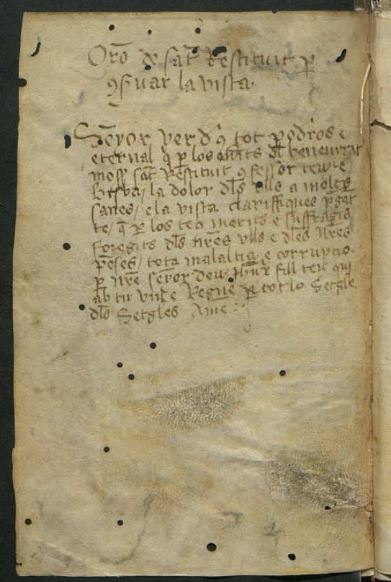 Oro de sat Restituit p
9suar la vista
Senyor ver d'9 tot podros e
eternal q p los merits del beneuirat
moss sat Restituit 9fessor teu e
bisbe / la dolor dls vlls a molts
sanes / e la vista clariffiques p gat
te / q p los seus merits e suffragis
foregits dls nres vlls e dles nres
penses / tota malaltia e corrupcio
p nre senyor deu Jhu xr fill teu qui
ab tu viu e Regne p tot lo Setgle
dls Setgles Ame